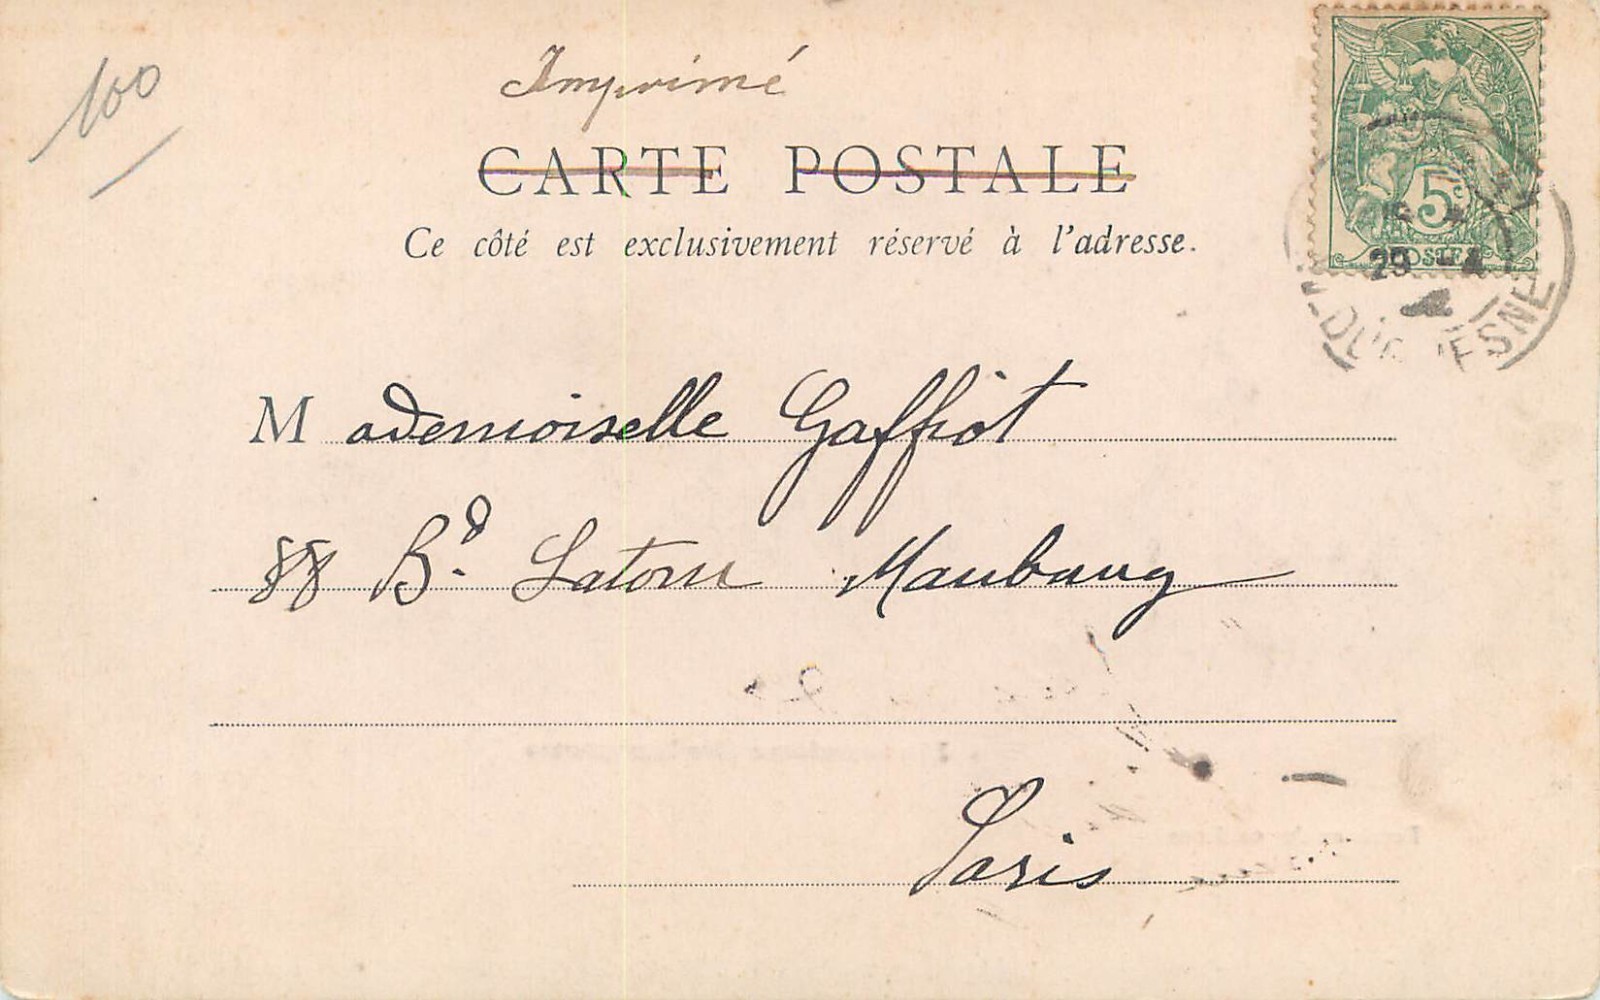 100
Imprimé
CARTE POSTALE
Ce côté est exclusivement réservé à l'adresse.
5c
POSTES
29
Mademoiselle Gaffiot
88 Bd. Latour Maubourg
Paris